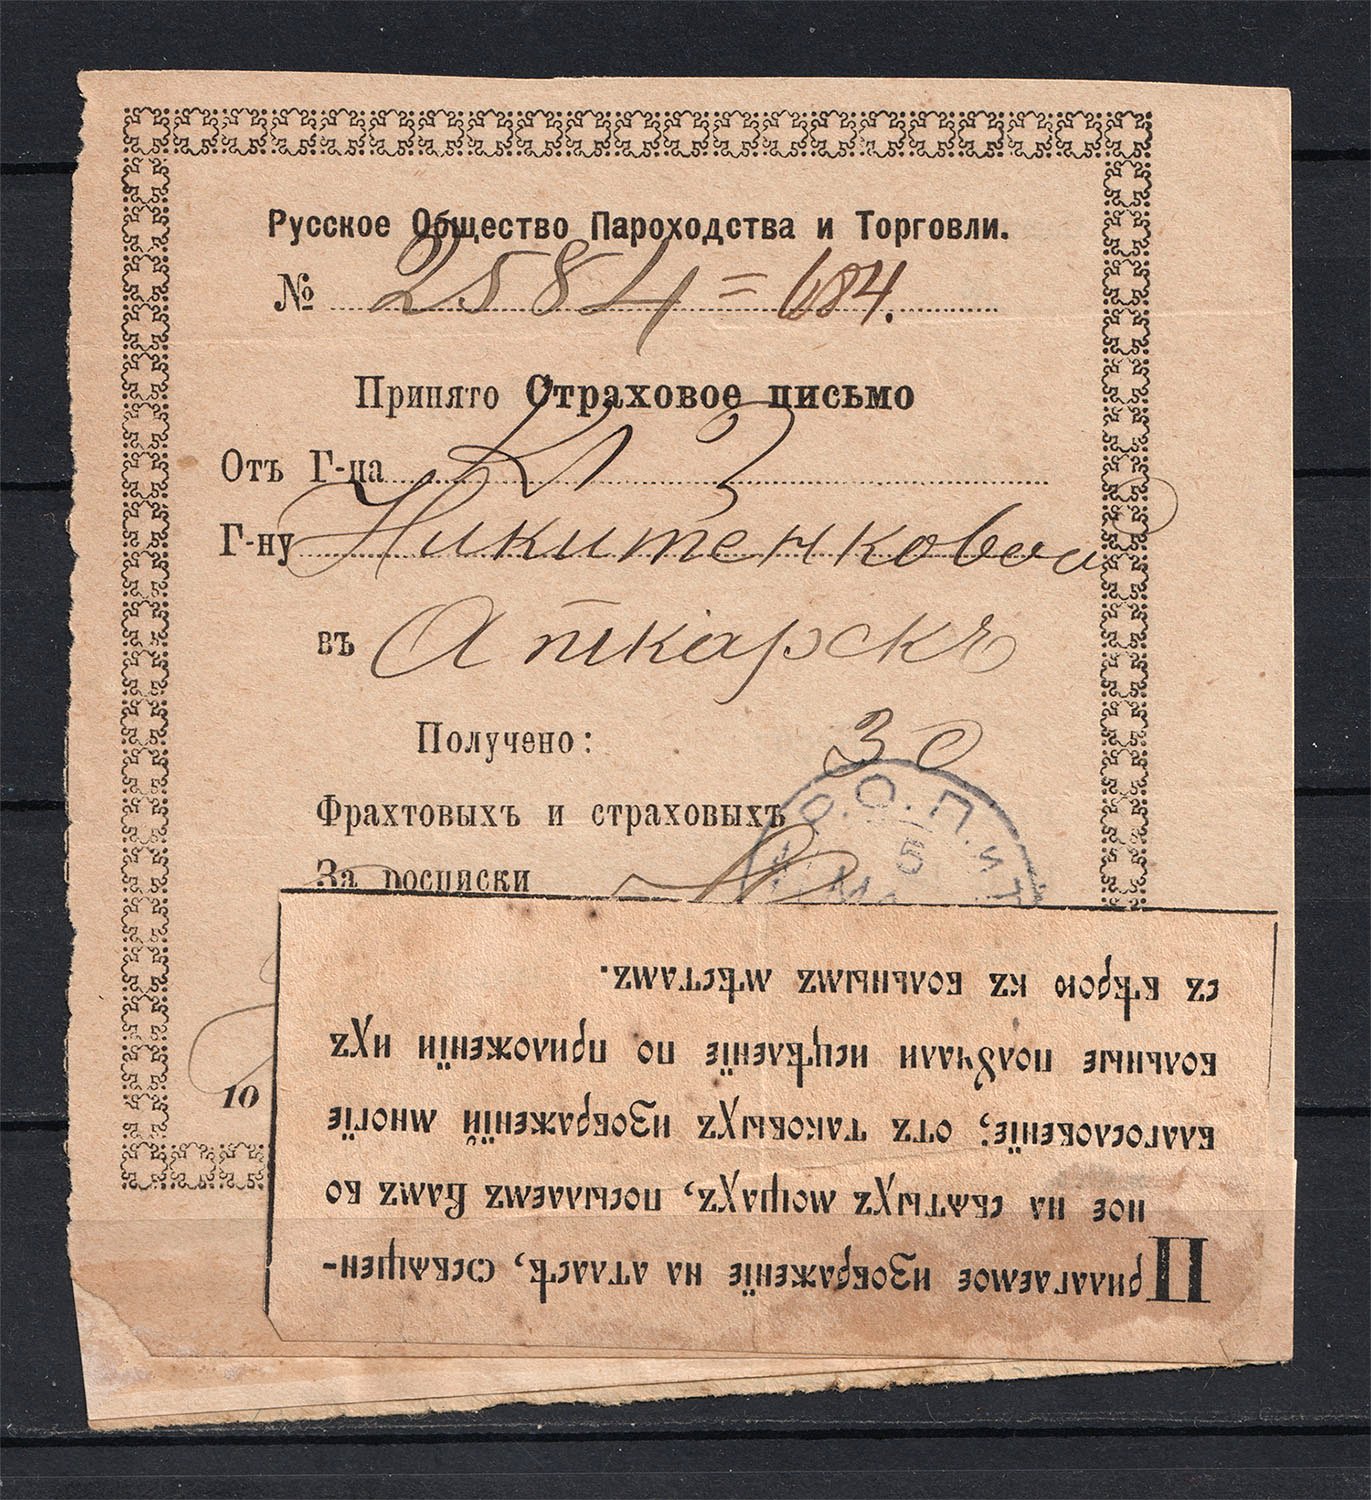 Русское Общество Пароходства и Торговли.
№ 2584 = 684.
Принято Страховое письмо
Отъ Г-на К З
Г-ну Никитенковой
въ Аткарскъ
Получено: 30
Фрахтовыхъ и страховыхъ
За росписки
Р. О. П. и Т
5
10
Прилагаемое изображенїе на атласѣ, освѧщен-
ное на свѧтыхъ мощахъ, посылаемъ Вамъ во
благословенїе; отъ таковыхъ изображенїй многїе
больные полꙋчали исцѣленїе по приложенїи ихъ
съ вѣрою къ больнымъ мѣстамъ.